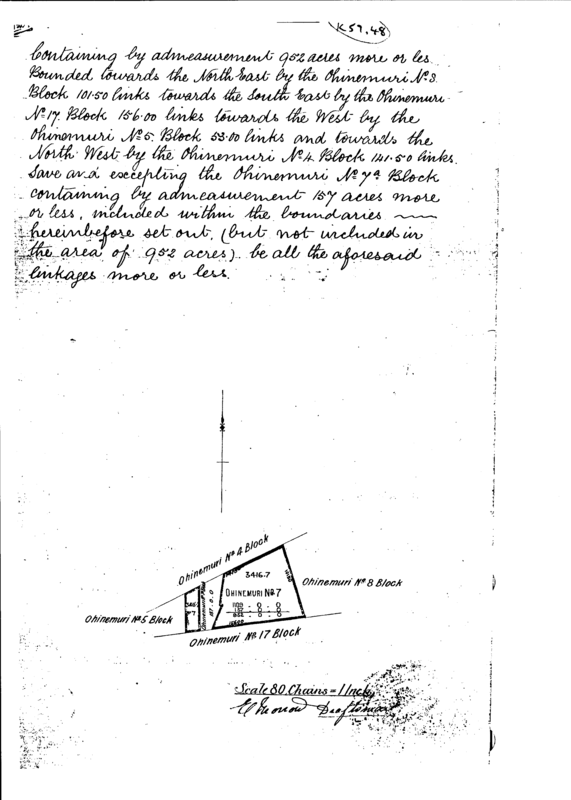 K57.48
Containing by admeasurement 952 acres more or les
Bounded towards the North East by the Ohinemuri No 3.
Block 101.50 links towards the South East by the Ohinemuri
No 17. Block 156.00 links towards the West by the
Ohinemuri No 5. Block 53.00 links and towards the
North West by the Ohinemuri No 4. Block 141.50 links.
Save and excepting the Ohinemuri No 7a Block
containing by admeasurement 157 acres more
or less, included within the boundaries
hereinbefore set out, (but not included in
the area of 952 acres) be all the aforesaid
linkages more or less.
Ohinemuri No 4 Block
3416.7
Ohinemuri No 7
Ohinemuri No 8 Block
Ohinemuri No 5 Block
Ohinemuri No 17 Block
Scale 80 Chains = 1 Inch
Draftsman